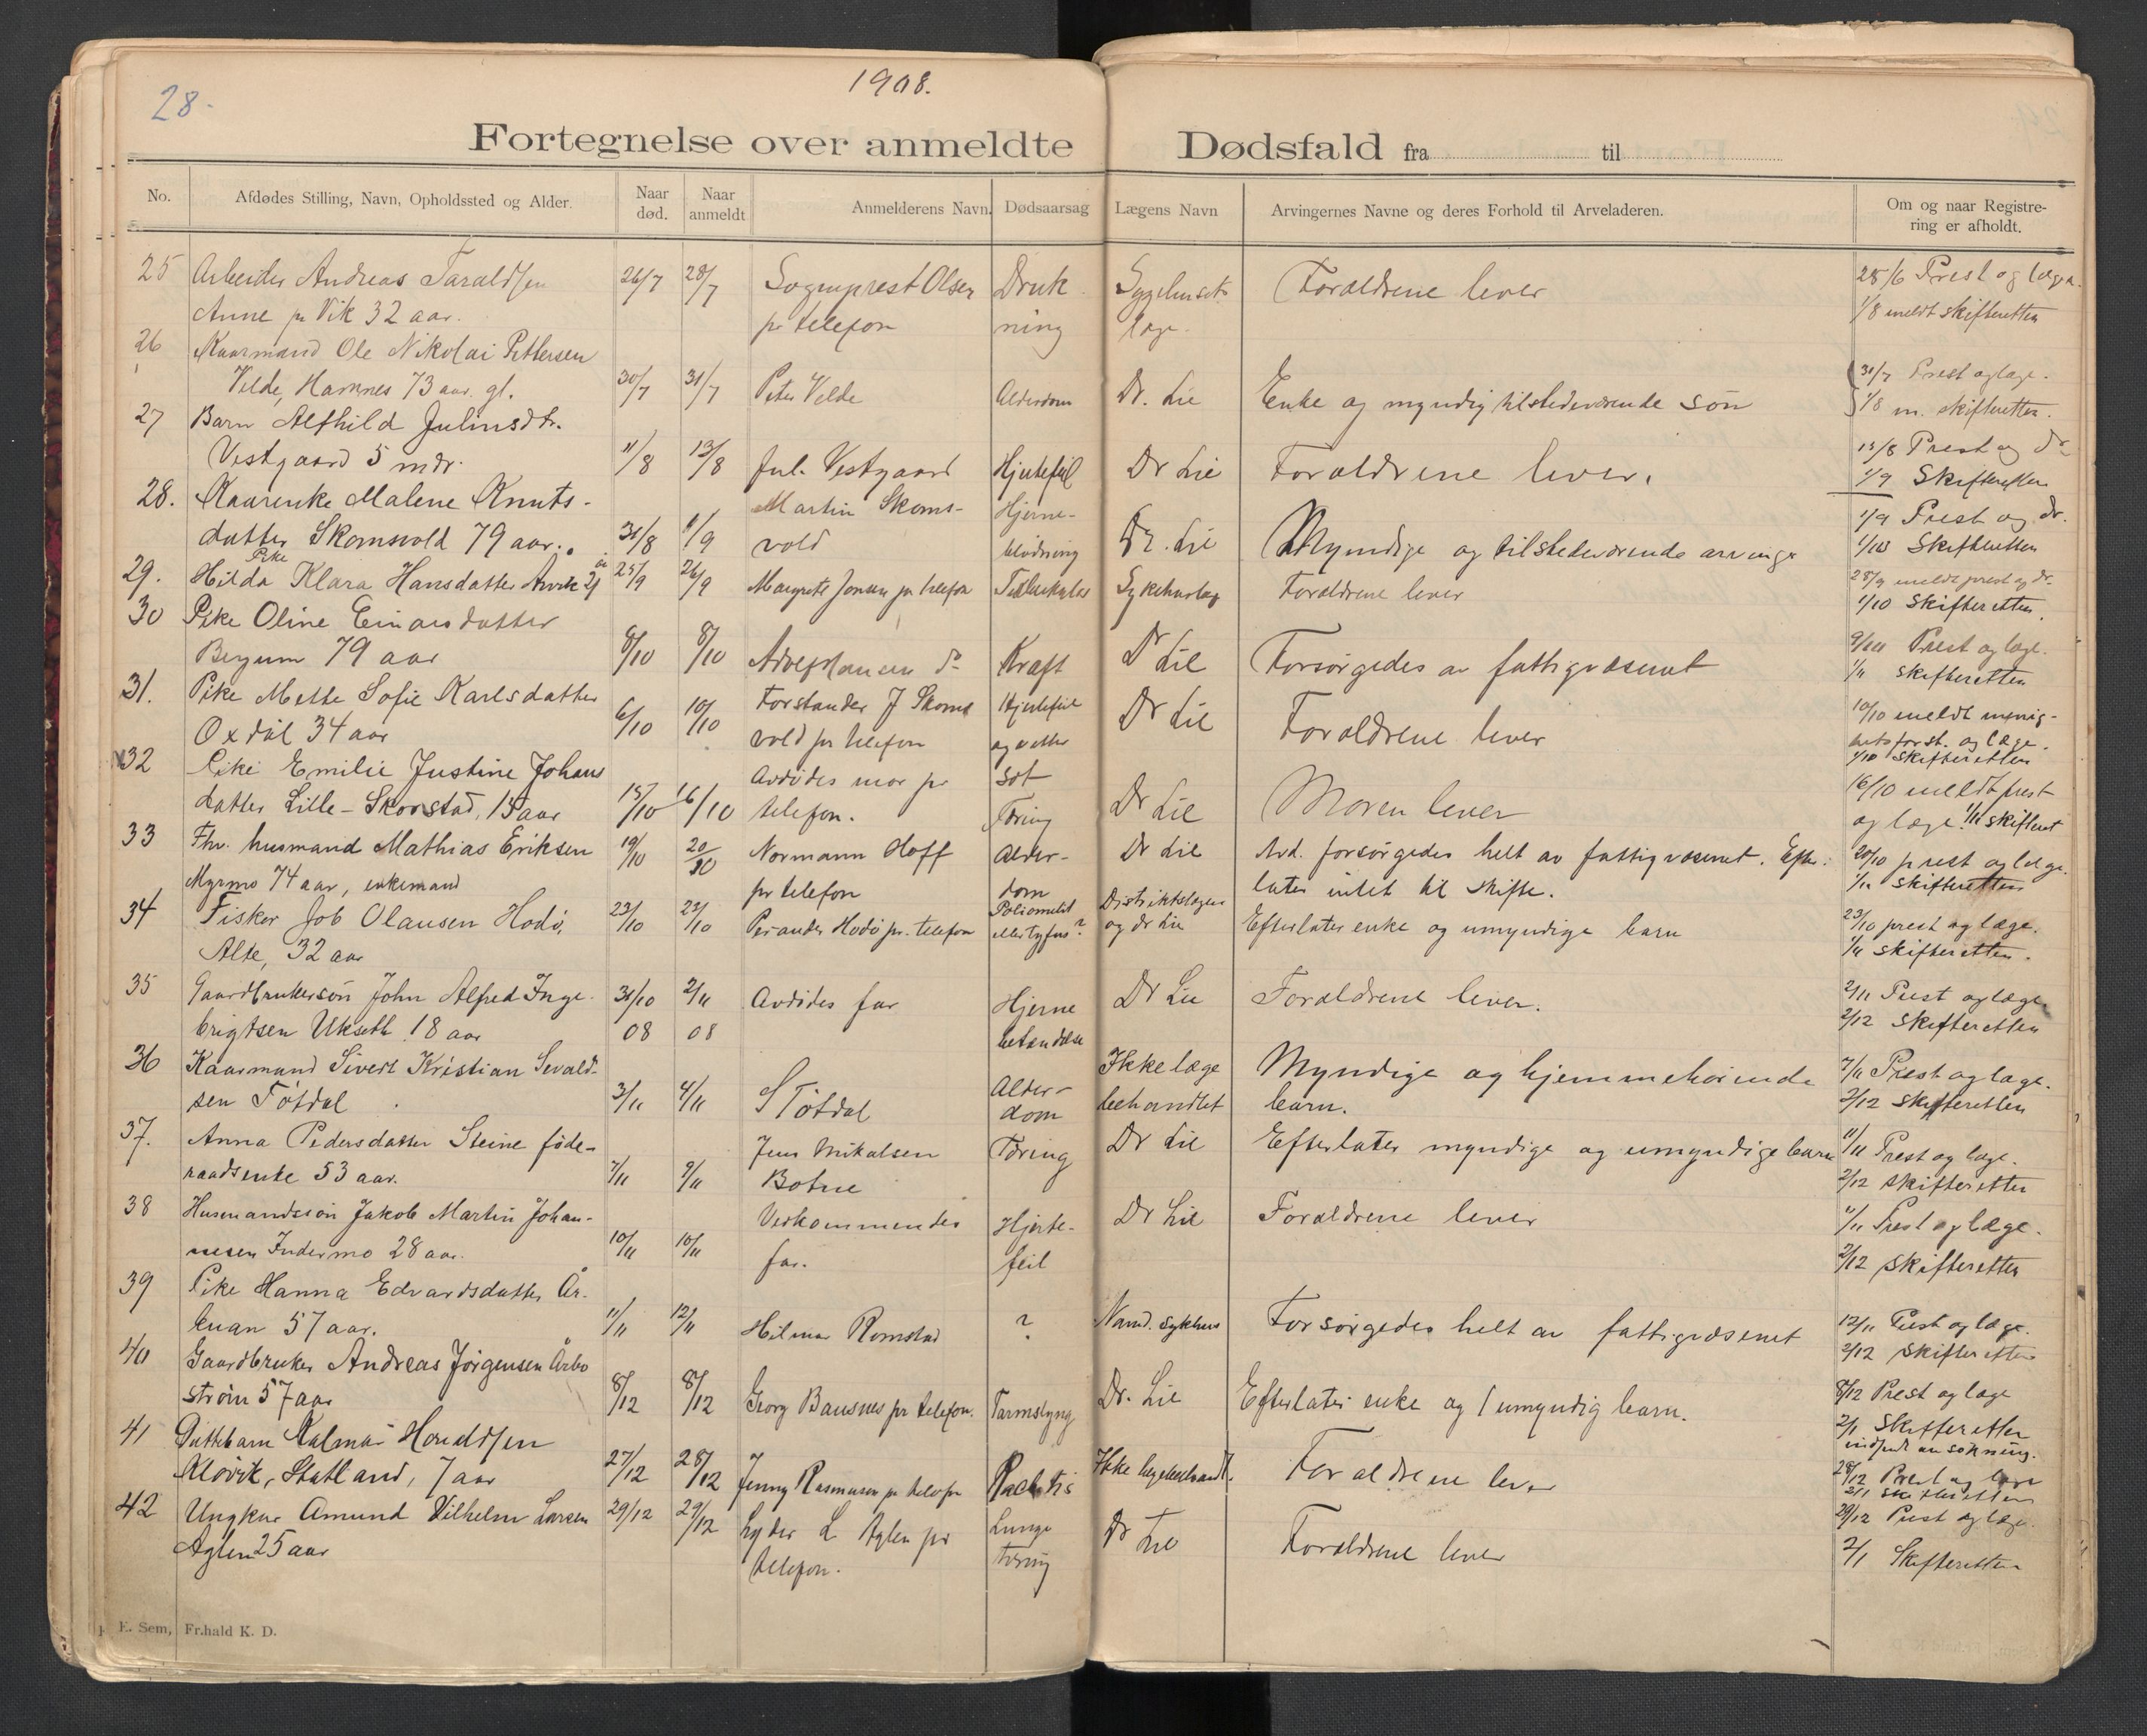 28.
1908.
Fortegnelse over anmeldte Dødsfald fra til
No.
Afdødes Stilling, Navn, Opholdssted og Alder.
Naar død.
Naar anmeldt
Anmelderens Navn.
Dødsaarsag
Lægens Navn
Arvingernes Navne og deres Forhold til Arveladeren.
Om og naar Registrering er afholdt.
25 Arbeider Andreas Taraldsen 26/7 28/7 Sogneprest Olsen Druk- Sygehusets Forældrene lever 28/6 Prest og læge.
Anne pr Vik 32 aar. pr telefon ning læge. 1/8 meldt skifteretten
26 Kaarmand Ole Nikolai Pettersen
Velde, Hamnes 73 aar gl. 30/7 31/7 Peter Velde Alderdom Dr. Lie Enke og myndig tilstedeværende søn 31/7 Prest og læge.
1/8 m. skifteretten.
27 Barn Alfhild Julinsdtr.
Vestgaard 5 mdr. 11/8 13/8 Jul. Vestgaard Hjertefeil Dr Lie Forældrene lever. 13/8 Prest og Dr
1/9 Skifteretten
28. Kaarenke Malene Knuts- Martin Skoms- Hjerne-
datter Skomsvold 79 aar. 31/8 1/9 vold blødning Dr. Lie Myndige og tilstedeværende arvinge 1/9 Prest og dr.
1/10 Skifteretten
Pike
29. Hilda Klara Hansdatter Arvik 25/9 26/9 Margrete Jonsen pr telefon Tuberkulos Sykehuslæg Forældrene lever 28/9 meldt prest og dr.
1/10 Skifteretten.
30 Pike Oline Einarsdatter
Bergum 79 aar 8/10 8/10 Kræft Dr Lie Forsørgedes av fattigvæsenet 9/10 Prest og læge.
1/11 skifteretten
31. Pike Mette Sofie Karlsdatter Forstander J Skoms Hjertefeil
Oxdal 34 aar 6/10 10/10 vold pr telefon og vatter Dr Lie Forældrene lever 10/10 meldt menig-
sot hetsforst. og læge.
1/10 skifteretten
32 Pike Emilie Justine Johans Avdødes mor pr
datter Lille-Skorstad, 15 aar 15/10 16/10 telefon. Tæring Dr Lie Moren lever 16/10 meldt prest
og læge. 1/11 skifteret
33 Fhv. husmand Mathias Eriksen 19/10 20/10 Normann Hoff Alder- Dr Lie Avd. forsørgedes helt av fattigvæsenet. Efter- 20/10 prest og læge.
Myrmo 74 aar, enkemand pr telefon dom later intet til skifte. 1/11 skifteretten
34 Fisker Job Olausen Hodø, 23/10 23/10 Peranders Hodø pr. telefon Poliomelit eller tyfus? Distriktslægen og dr Lie Efterlater enke og umyndige barn 23/10 prest og læge.
Alte, 32 aar 1/11 skifteretten.
35 Gaardbrukersøn John Alfred Inge- 31/10 2/11 Avdødes far Hjerne Dr Lie Forældrene lever. 2/11 Prest og læge
brigtsen Ukseth 18 aar 08 08 betændelse 2/12 Skifteretten
36 Kaarmand Sivert Kristian Sevald- Ikke læge Myndige og hjemmehørende 7/11 Prest og læge.
sen Føtdal 3/11 4/11 S Føtdal Alderdom behandlet barn. 2/12 skifteretten
37. Anna Pedersdatter Steine føde- Jens Mikalsen Tæring Dr Lie Efterlater myndige og umyndige barn 11/11 Prest og læge.
raadsenke 53 aar. 7/11 9/11 Botne 2/12 skifteretten
38 Husmandssøn Jakob Martin Johan- Vedkommendes Hjerte- Dr Lie Forældrene lever 11/11 Prest og læge.
nesen Indermo 28 aar. 10/11 10/11 far. feil 2/12 skifteretten
39 Pike Hanna Edvardsdatter År-
kuan 57 aar. 11/11 12/11 Hilmar Romstad ? Namd. sykhus Forsørgedes helt av fattigvæsenet 12/11 Prest og læge.
2/12 Skifteretten
40 Gaardbruker Andreas Jørgensen Årbo
strøm 57 aar 8/12 8/12 Georg Bausnes pr telefon. Tarmslyng Dr. Lie Efterlater enke og 1 umyndig barn. 8/12 Prest og læge
2/1 Skifteretten
41 Guttebarn Kalmar
Kløvik, Statland, 7 aar 27/12 28/12 Jenny Rasmusen pr telefon Rachitis Ikke lægebehandt. Forældrene lever 28/12 Prest og læge
2/1 Skifteretten
42 Ungkar Amund Vilhelm Larsen 29/12 29/12 Lyder L Aglen pr Lunge Dr Lie Forældrene lever 29/12 Prest og læge
Aglen 25 aar telefon. tæring 2/1 Skifteretten
E. Sem, Fr.hald K. D.